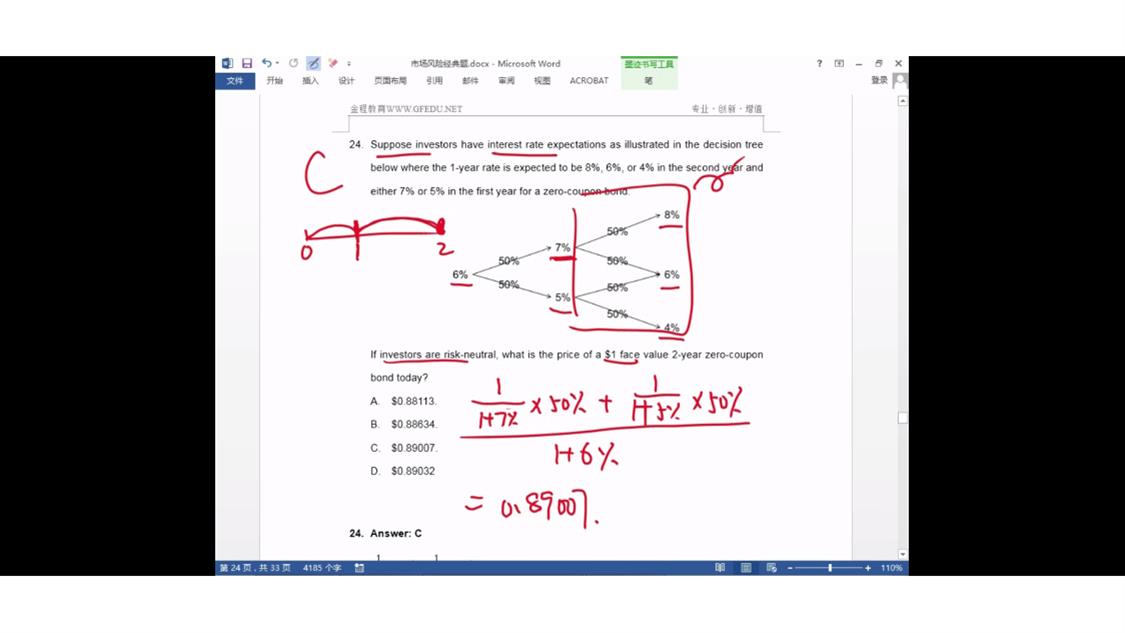 市场风险经典题.docx - Microsoft Word
墨迹书写工具
文件 开始 插入 设计 页面布局 引用 邮件 审阅 视图 ACROBAT 笔 登录
金程教育WWW.GFEDU.NET 专业·创新·增值
24. Suppose investors have interest rate expectations as illustrated in the decision tree
below where the 1-year rate is expected to be 8%, 6%, or 4% in the second year and
either 7% or 5% in the first year for a zero-coupon bond.
C
0 1 2
8%
50%
7%
50% 50%
6% 6%
50% 50%
5%
50%
4%
If investors are risk-neutral, what is the price of a $1 face value 2-year zero-coupon
bond today?
A. $0.88113.
B. $0.88634.
C. $0.89007.
D. $0.89032
1 1
1+7% ×50% + 1+5% ×50%
1+6%
= 0.89007.
24. Answer: C
1 1
第 24 页，共 33 页 4185 个字 110%